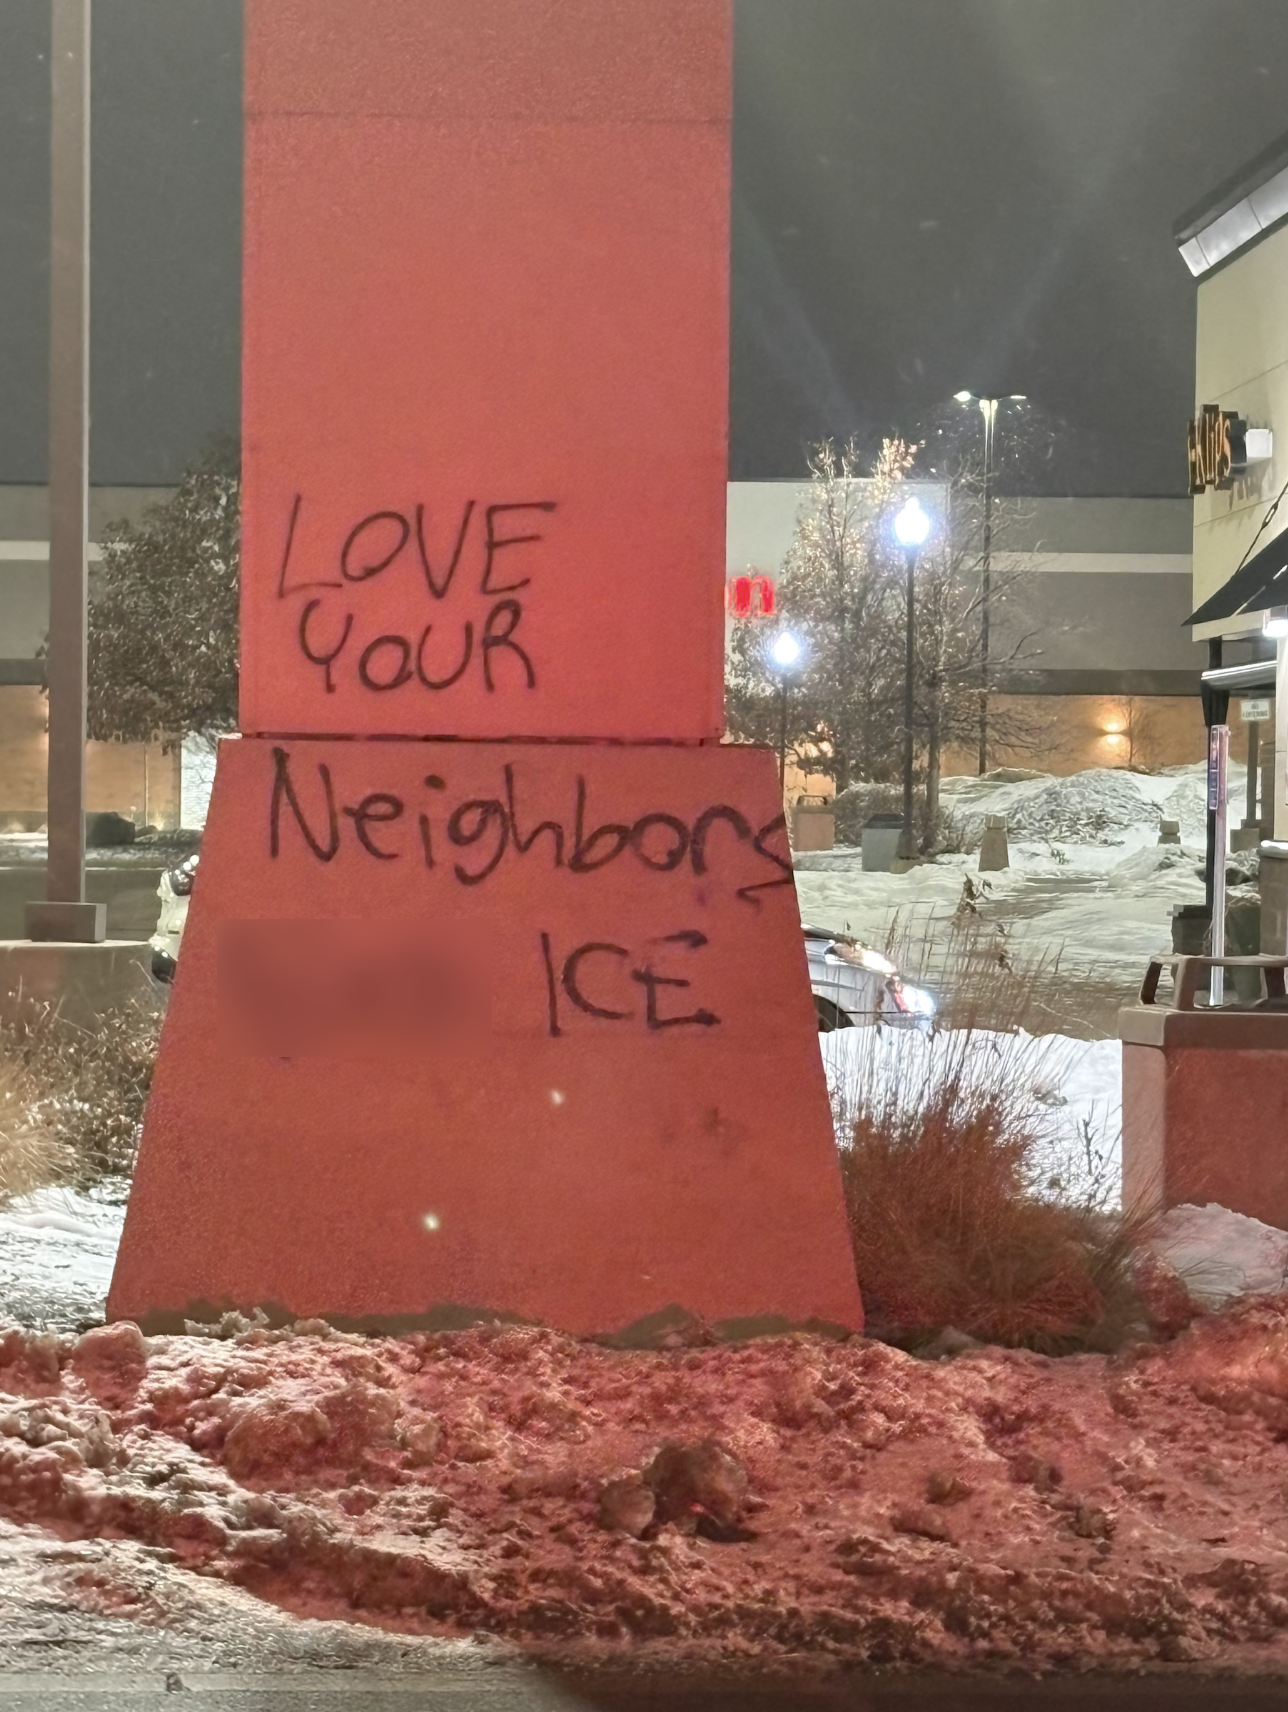 LOVE
YOUR
Neighbors
ICE
Klips
m